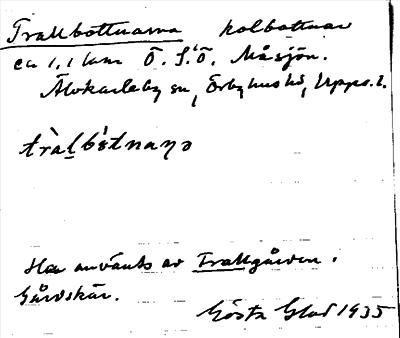 Trallbottnarna kolbottnar
ca 1,1 km Ö. S.Ö. Måsjön.
Älvkarleby sn, Örbyhus hd, Upps. l.
tràlbɷ́tnaɳa
Har använts av Trallgården.
Gårdskär.
Gösta Glad 1935